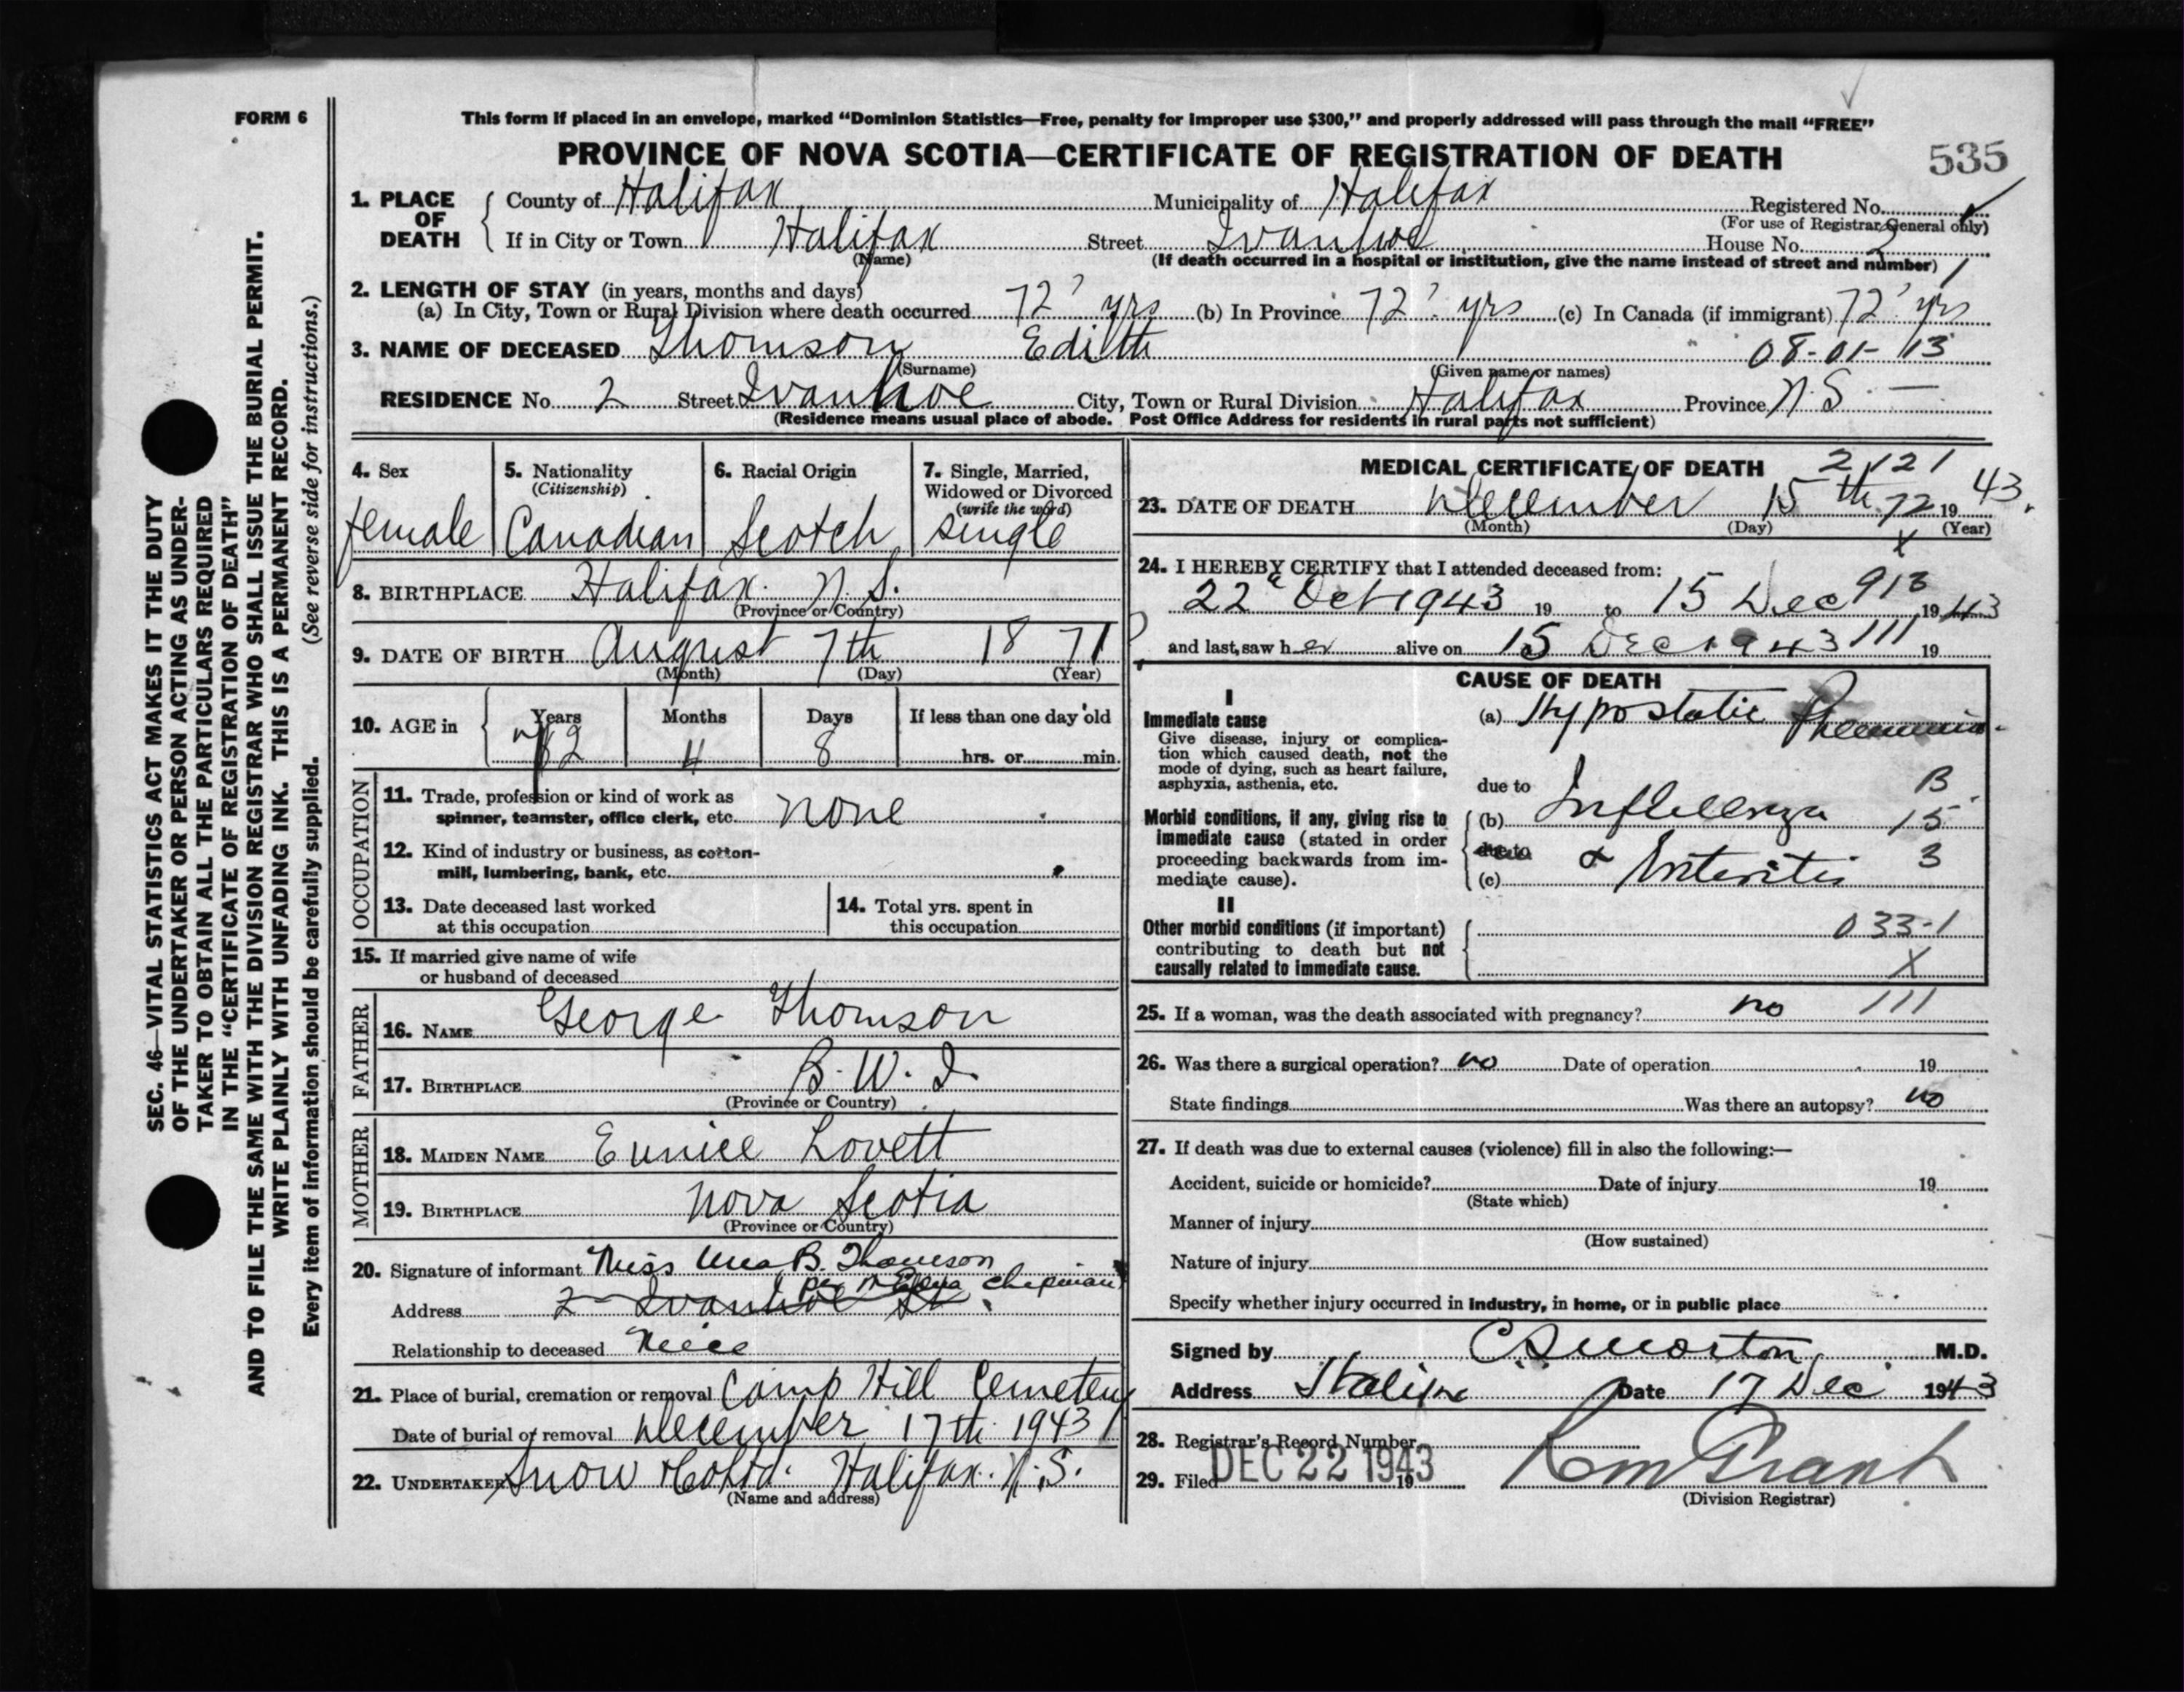 FORM 6
This form if placed in an envelope, marked “Dominion Statistics—Free, penalty for improper use $300,” and properly addressed will pass through the mail “FREE”
PROVINCE OF NOVA SCOTIA—CERTIFICATE OF REGISTRATION OF DEATH
535
1. PLACE OF DEATH
County of Halifax Municipality of Halifax Registered No.
(For use of Registrar General only)
If in City or Town Halifax Street Ivanhoe House No. 2
(Name) (If death occurred in a hospital or institution, give the name instead of street and number) 1
2. LENGTH OF STAY (in years, months and days)
(a) In City, Town or Rural Division where death occurred 72 yrs (b) In Province 72 yrs (c) In Canada (if immigrant) 72 yrs
3. NAME OF DECEASED Thomson Edith 08-01-13
(Surname) (Given name or names)
RESIDENCE No. 2 Street Ivanhoe City, Town or Rural Division Halifax Province N.S —
(Residence means usual place of abode. Post Office Address for residents in rural parts not sufficient)
4. Sex
female
5. Nationality
(Citizenship)
Canadian
6. Racial Origin
Scotch
7. Single, Married,
Widowed or Divorced
(write the word)
single
8. BIRTHPLACE Halifax. N.S.
(Province or Country)
9. DATE OF BIRTH August 7th 1871
(Month) (Day) (Year)
10. AGE in Years Months Days If less than one day old
72 4 8 hrs. or min.
OCCUPATION
11. Trade, profession or kind of work as
spinner, teamster, office clerk, etc. none
12. Kind of industry or business, as cotton-
mill, lumbering, bank, etc.
13. Date deceased last worked
at this occupation
14. Total yrs. spent in
this occupation
15. If married give name of wife
or husband of deceased
FATHER
16. NAME George Thomson
17. BIRTHPLACE B.W.I.
(Province or Country)
MOTHER
18. MAIDEN NAME Eunice Lovett
19. BIRTHPLACE Nova Scotia
(Province or Country)
20. Signature of informant Miss Una B. Thomson
per Chipman
Address 2 Ivanhoe St.
Relationship to deceased Niece
21. Place of burial, cremation or removal Camp Hill Cemetery
Date of burial or removal December 17th 1943
22. UNDERTAKER Snow & Co Ltd. Halifax. N.S.
(Name and address)
MEDICAL CERTIFICATE OF DEATH 2121
23. DATE OF DEATH December 15th 72 19 43.
(Month) (Day) (Year)
X
24. I HEREBY CERTIFY that I attended deceased from:
22 Oct 1943 19 to 15 Dec 913 19 43
and last saw her alive on 15 Dec 1943 111 19
CAUSE OF DEATH
I
Immediate cause
Give disease, injury or complica-
tion which caused death, not the
mode of dying, such as heart failure,
asphyxia, asthenia, etc.
(a) Hypostatic Pneumonia.
due to B
Morbid conditions, if any, giving rise to
immediate cause (stated in order
proceeding backwards from im-
mediate cause).
(b) Influenza 15
due to & Enteritis 3
(c)
II
Other morbid conditions (if important)
contributing to death but not
causally related to immediate cause.
033-1
X
25. If a woman, was the death associated with pregnancy? no 111
26. Was there a surgical operation? no Date of operation 19
State findings Was there an autopsy? no
27. If death was due to external causes (violence) fill in also the following:—
Accident, suicide or homicide? Date of injury 19
(State which)
Manner of injury
(How sustained)
Nature of injury
Specify whether injury occurred in industry, in home, or in public place
Signed by C S Morton M.D.
Address Halifax Date 17 Dec 1943
28. Registrar's Record Number
29. Filed DEC 22 1943 19
(Division Registrar)
SEC. 46—VITAL STATISTICS ACT MAKES IT THE DUTY
OF THE UNDERTAKER OR PERSON ACTING AS UNDER-
TAKER TO OBTAIN ALL THE PARTICULARS REQUIRED
IN THE “CERTIFICATE OF REGISTRATION OF DEATH”
AND TO FILE THE SAME WITH THE DIVISION REGISTRAR WHO SHALL ISSUE THE BURIAL PERMIT.
WRITE PLAINLY WITH UNFADING INK. THIS IS A PERMANENT RECORD.
Every item of information should be carefully supplied. (See reverse side for instructions.)